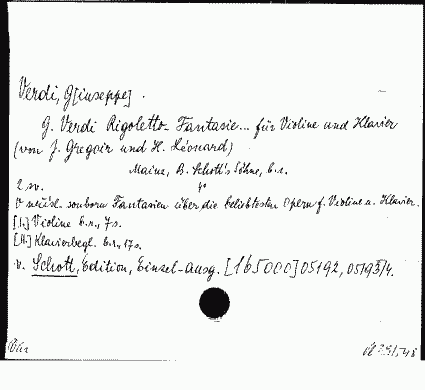 Verdi, G[iuseppe].
G. Verdi Rigoletto-Fantasie... für Violine und Klavier
(von J. Gregoir und H. Léonard)
Mainz, B. Schott's Söhne, b.r.
2 sv. 4°
Fantasien über die beliebtesten Opern f. Violine u. Klavier.
[I.] Violine b.r., 7 s.
[II.] Klavierbegl. b.r., 17 s.
v. Schott, Edition, Einzel-Ausg. [165000] 05192, 05193/4.